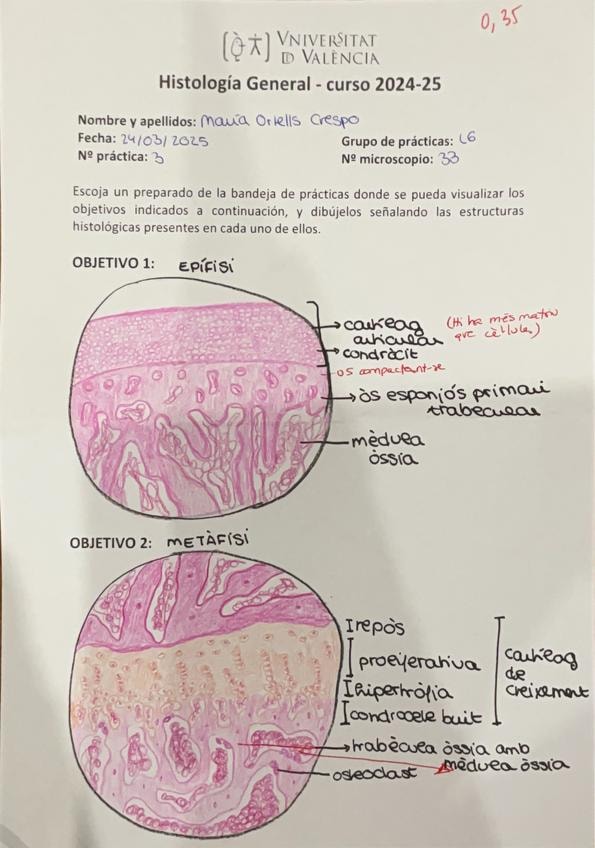 0,35
VNIVERSITAT
ID VALÈNCIA
Histología General - curso 2024-25
Nombre y apellidos: Maria Orells Crespo
Fecha: 24/03/2025
Grupo de prácticas: L6
Nº práctica: 3
Nº microscopio: 33
Escoja un preparado de la bandeja de prácticas donde se pueda visualizar los
objetivos indicados a continuación, y dibújelos señalando las estructuras
histológicas presentes en cada uno de ellos.
OBJETIVO 1: EPÍFISI
cartílag
articular
(Hi ha més matriu
que cèl·lules)
condròcit
os compactant-se
òs esponjós primari
trabecular
mèdul·la
òssia
OBJETIVO 2: METÀFISI
repòs
proliferativa
hipertròfia
condrocele buit
cartílag
de
creixement
trabècula òssia amb
mèdul·la òssia
osteoclast